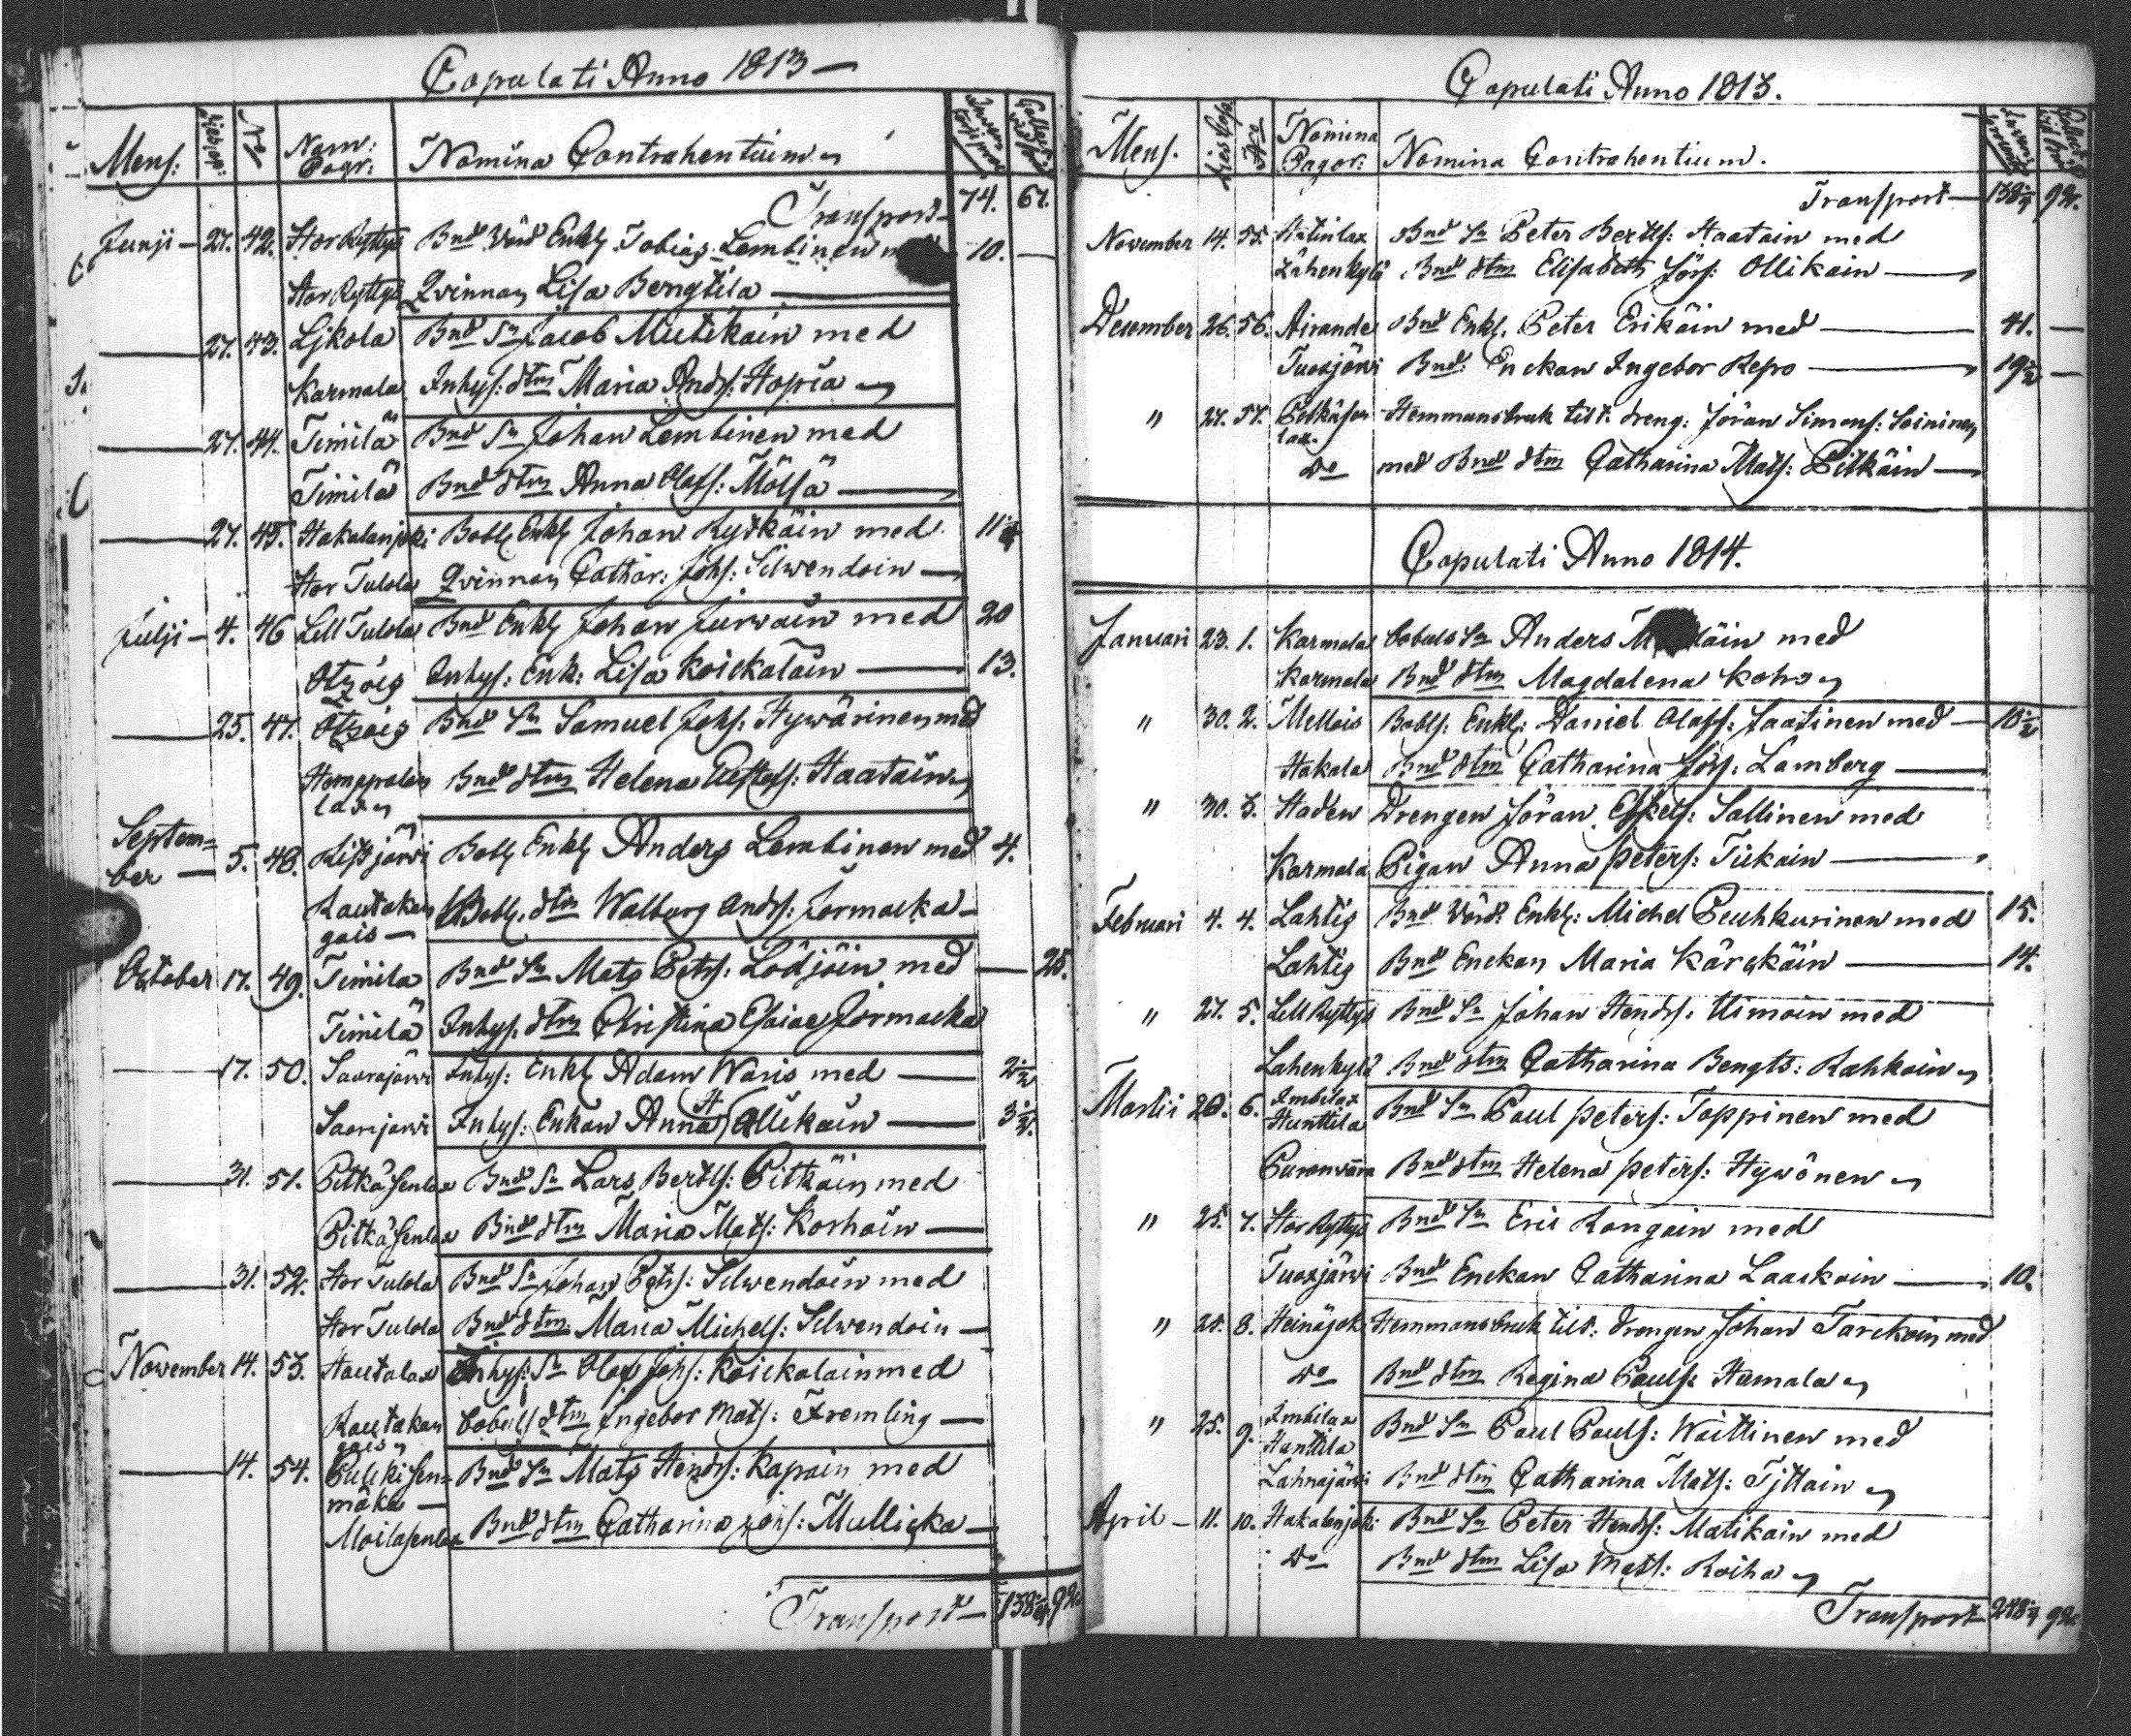 Copulati Anno 1813
Mens: Nom: Pagr: Nomina Contrahentium
Transport 74. 67.
Junji 27. 42. Stor Ryttys Bnd Vård Enkl Tobias Lembinen 10.
Stor Ryttys Qvinnan Lisa Bengtila
27. 43. Ljkola Bnd Sn Jacob Mutikain med
Karmala Inhys: dtm Maria Ands: Hopia
27. 44. Timilä Bnd Sn Johan Lembinen med
Timilä Bnd dtm Anna Olafs: Mölsä
27. 45. Hakalanjoki Bobl Enkl Johan Rytkäin med 11
Stor Tulola Qvinnan Cathar: Johs: Silwendoin
Julji 4. 46 Lill Tulola Bnd Enkl Johan Jurwain med 20
Otzois Inhys: Enk: Lisa Koickalain 13.
25. 47. Otzois Bnd Sn Samuel Johs: Hywärinen med
Homppalen Bnd dtm Helena Haatain
lax
Septem=
ber 5. 48. Ristjärvi Bobl Enkl Anders Lembinen med 4.
Rautakan Bobl. dtm Walborg Ands: Jormacka
gais
October 17. 49. Timila Bnd Sn Mats Pets: Lödjöin med 25.
Timilä Inhys. dtm Christina Esaiae Jormacka
17. 50. Saarajärvi Inhys: Enkl Adam Waris med 2½
Saarijärvi Inhys: Enkan Anna H Ollikain 3½.
31. 51. Pitkäsenlax Bnd Sn Lars Bertls: Pitkäin med
Pitkäsenlax Bnd dtm Maria Mats: Korhoin
31. 52. Stor Tulola Bnd Sn Johan Pets: Silwendoin med
Stor Tulola Bnd dtm Maria Michels: Silwendoin
November 14. 53. Hautalax Inhys: Sn Olof Johs: Koickalain med
Rautakan dtm Ingebor Mats: Fremling
gais
14. 54. Pulckisen= Bnd Sn Mats Hends: Kapain med
mäki
Moilasenlax Bnd dtm Catharina Johs: Mullicka
Transport 138 92
Copulati Anno 1813.
Mens. Dies Cop. Nro Nomina Pagor: Nomina Contrahentium.
Transport 138 92.
November 14. 55. Bnd Sn Peter Bertls: Haatain med
Lähenkylä Bnd dtm Elisabeth Jörs: Ollikain
December 26. 56. Airande Bnd Enkl. Peter Erikäin med 41.
Tuoxjärwi Bnd: Enckan Ingebor Repo 19½
" 27. 57. Pitkäsen Hemmansbruk tilt: dreng: Jöran Simons: Soininen
lax
Do med Bnd dtm Catharina Mats: Pitkäin
Copulati Anno 1814.
Januari 23. 1. Karmala Sn Anders med
Karmala Bnd dtm Magdalena Koho
" 30. 2. Mellois Bobls. Enkl: Daniel Olofs: Jaatinen med 10½
Hakala Bnd dtm Catharina Jörs: Lamberg
" 30. 3. Haden Drengen Jöran Eskels: Sallinen med
Karmala Pigan Anna Peters: Tiikain
Februari 4. 4. Lahtis Bnd Vård: Enkl: Michel Peuhkurinen med 15.
Lahtis Bnd Enckan Maria Kärckäin 14.
" 27. 5. Lill Ryttys Bnd Sn Johan Hends: Uimoin med
Lahenkylä Bnd dtm Catharina Bengts: Rahkoin
Martii 20. 6. Imbilax Bnd Sn Paul Peters: Toppinen med
Hunttila
Puronvara Bnd dtm Helena Peters: Hywönen
" 25. 7. Stor Ryttys Bnd Sn Eric Rongain med
Tuoxjärwi Bnd Enckan Catharina Laackoin 10.
" 25. 8. Heinäjoki Hemmansbruk tilt: drengen Johan Tarckoin med
Do Bnd dtm Regina Pauls: Hamala
" 25. 9. Imbilax Bnd Sn Paul Pauls: Waittinen med
Hunttila
Lahnajärwi Bnd dtm Catharina Mats: Tjttain
April 11. 10. Hakalanjoki Bnd Sn Peter Hends: Matikain med
Do Bnd dtm Lisa Mats: Roiha
Transport 248 92